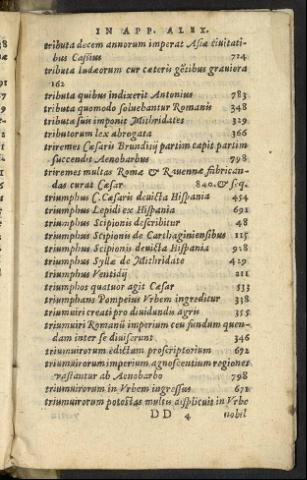 IN APP. ALEX.
tributa decem annorum imperat Asiæ ciuitati-
bus Cassius 724
tributa Iudæorum cur cæteris gẽtibus grauiora
162
tributa quibus indixerit Antonius 783
tributa quomodo soluebantur Romanis 348
tributa suis imponit Mithridates 329
tributorum lex abrogata 366
triremes Cæsaris Brundisij partim capit partim
succendit Aenobarbus 798
triremes multas Romæ & Rauennæ fabrican-
das curat Cæsar 840. & seq.
triumphus C. Cæsaris deuicta Hispania 454
triumphus Lepidi ex Hispania 691
triumphus Scipionis describitur 48
triumphus Scipionis de Carthaginiensibus 125
triumphus Scipionis deuicta Hispania 928
triumphus Syllæ de Mithridate 429
triumphus Ventidij 211
triumphos quatuor agit Cæsar 533
triumphans Pompeius Vrbem ingreditur 338
triumuiri creati pro diuidundis agris 355
triumuiri Romanũ imperium ceu fundum quen-
dam inter se diuiserunt 346
triumuirorum edictum proscriptorium 672
triumuirorum imperium agnoscentium regiones
vastantur ab Aenobarbo 798
triumuirorum in Vrbem ingressus 671
triumuirorum potẽtias multis displicuit in Vrbe
DD 4 nobil